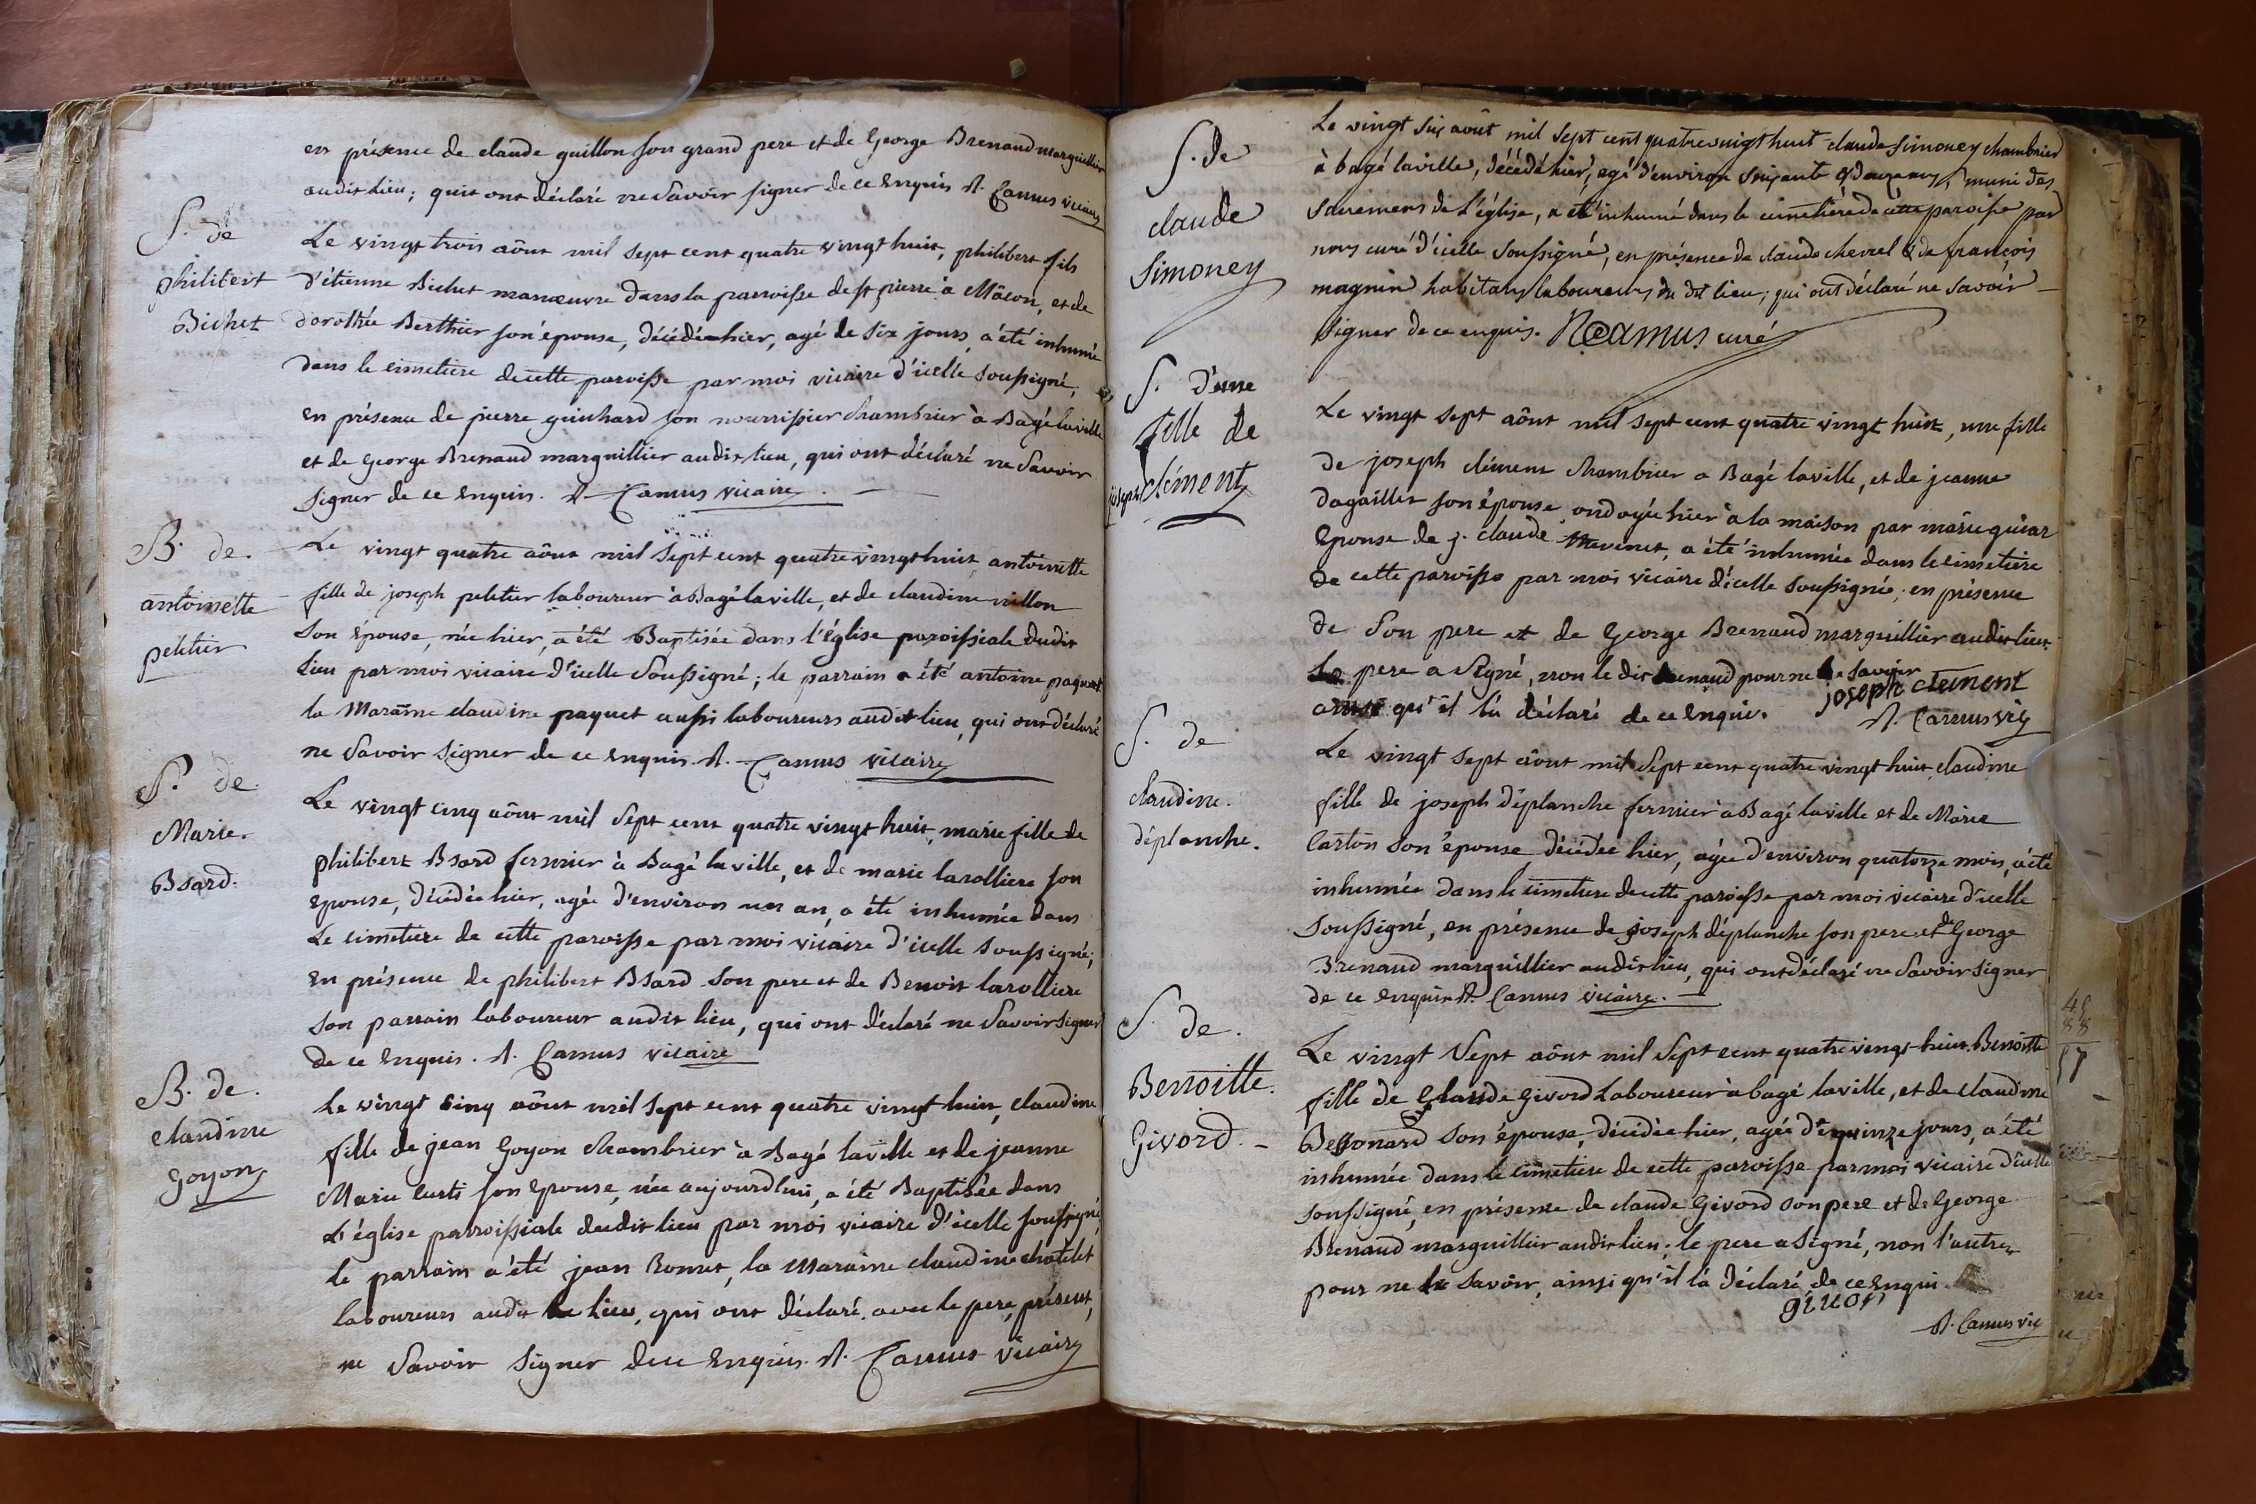 en présence de claude guillon son grand pere et de George Brenaud marguillier
audit Lieu; qui ont déclaré ne savoir signer de ce Enquis A. Camus vicaire
S. de
philibert
Bichet
Le vingt trois aôut mil sept cent quatre vingt huit, philibert fils
d'étienne Bichet manœuvre dans la parroisse de st pierre à Mâcon, et de
dorothée Berthier son épouse, décédé hier, agé de six jours, a été inhumé
dans le cimetiere de cette paroisse par moi vicaire d'icelle soussigné,
en présence de pierre guichard son nourrissier chambrier à Bagé laville
et de George Brenaud marguillier audit lieu, qui ont déclaré ne savoir
signer de ce Enquis. A Camus vicaire
B. de
antoinette
petitier
Le vingt quatre aôut mil sept cent quatre vingt huit, antoinette
fille de joseph petitier laboureur à Bagé laville, et de claudine villon
son épouse, née hier, a été Baptisée dans l'église paroissiale dudit
lieu par moi vicaire d'icelle soussigné; le parrain a été antoine paquet
la Maraine claudine paquet aussi laboureurs audit lieu, qui ont déclaré
ne savoir signer de ce Enquis. A. Camus vicaire
S. de
Marie
Bsard.
Le vingt cinq aôut mil sept cent quatre vingt huit, marie fille de
philibert Bsard fermier à Bagé laville, et de marie larolliere son
epouse, décédée hier, agée d'environ un an, a été inhumée dans
Le cimetiere de cette paroisse par moi vicaire d'icelle soussigné;
en présence de philibert Bsard son pere et de Benoit larolliere
son parrain laboureur audit lieu, qui ont déclaré ne savoir signer
de ce Enquis. A. Camus vicaire
B. de
claudine
Goyon
Le vingt cinq aôut mil sept cent quatre vingt huit, claudine
fille de jean Goyon chambrier à Bagé laville et de jeanne
Marie Curti son epouse, née aujourdhui, a été Baptisée dans
L'église parroissiale dudit lieu par moi vicaire d'icelle soussigné,
le parrain a été jean Bonnet, la Maraine claudine chatelet
laboureurs audit lieu, qui ont déclaré, avec le pere, présent,
ne savoir signer de ce Enquis. A. Camus vicaire
S. de
claude
Simoney
Le vingt six août mil sept cent quatre vingt huit claude simoney chambrier
à bagé laville, décédé hier, agé d'environ soixante & douze ans, muni des
sacremens de l'église, a été inhumé dans le cimetiere de cette paroisse par
nous curé d'icelle soussigné, en présence de claude chevrel & de françois
magnin habitans laboureurs du dit lieu; qui ont déclaré ne savoir
signer de ce enquis. N Camus curé
S. d'une
fille de
joseph clément
Le vingt sept aôut mil sept cent quatre vingt huit, une fille
de joseph clément chambrier a Bagé laville, et de jeanne
dagallier son épouse, ondoyée hier à la maison par marie
Epouse de j. claude Thevenet, a été inhumée dans le cimetiere
de cette paroisse par moi vicaire d'icelle soussigné, en présence
de son pere et de George Brenaud marguillier audit lieu.
Le pere a signé, non le dit Brenaud pour ne le savoir
ainsi qu'il l'a déclaré de ce Enquis. joseph clement
A. Camus vic
S. de
claudine
déplanche.
Le vingt sept aôut mil sept cent quatre vingt huit, claudine
fille de joseph déplanche fermier à Bagé laville et de Marie
Carton son épouse, décédée hier, agée d'environ quatorze mois, a été
inhumée dans le cimetiere de cette paroisse par moi vicaire d'icelle
soussigné, en présence de joseph déplanche son pere et de George
Brenaud marguillier audit lieu, qui ont déclaré ne savoir signer
de ce Enquis A. Camus vicaire.
S. de.
Benoitte.
Givord.
Le vingt sept aôut mil sept cent quatre vingt huit. Benoitte
fille de Claude Givord Laboureur à bagé laville, et de claudine
Bessonard son épouse, décédée hier, agée de quinze jours, a été
inhumée dans le cimetiere de cette paroisse par moi vicaire d'icelle
soussigné, en présence de claude Givord son pere et de George
Brenaud marguillier audit lieu; le pere a signé, non l'autre
pour ne le savoir, ainsi qu'il l'a déclaré de ce Enqui.
givor
A. Camus vic